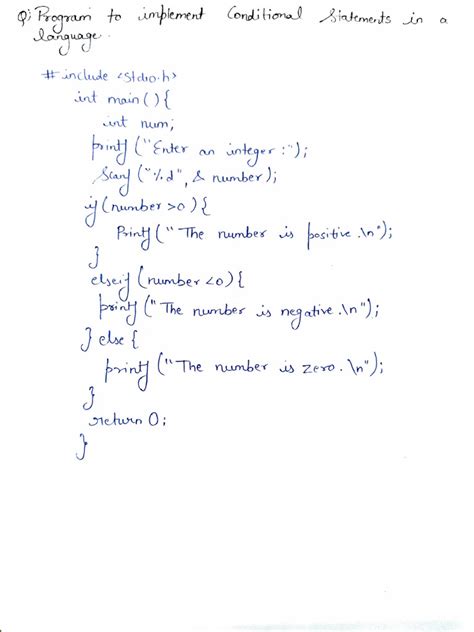 Q: Program to implement Conditional Statements in a
language.
#include <stdio.h>
int main() {
int num;
printf("Enter an integer:");
Scanf("%d", & number);
if(number >0) {
Printf("The number is positive.\n");
}
elseif(number <0) {
printf("The number is negative.\n");
} else {
printf("The number is zero.\n");
}
return 0;
}